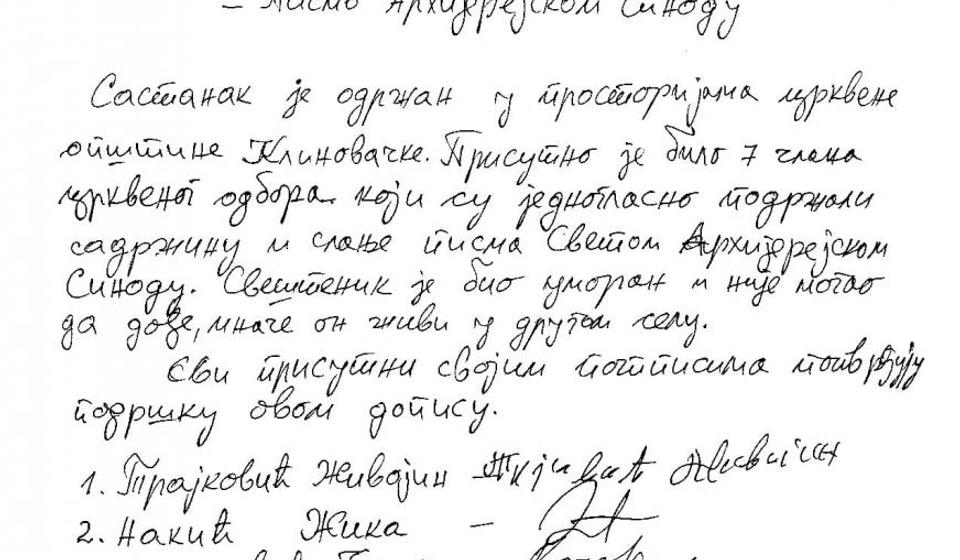 – Писмо Архијерејском Синоду
Састанак је одржан у просторијама црквене
општине Клиновачке. Присутно је било 7 члана
црквеног одбора који су једногласно подржали
садржину и слање писма Светом Архијерејском
Синоду. Свештеник је био уморан и није могао
да дође, иначе он живи у другом селу.
Сви присутни својим потписима потврђују
подршку овом допису.
1. Трајковић Живојин
2. Накић Жика –